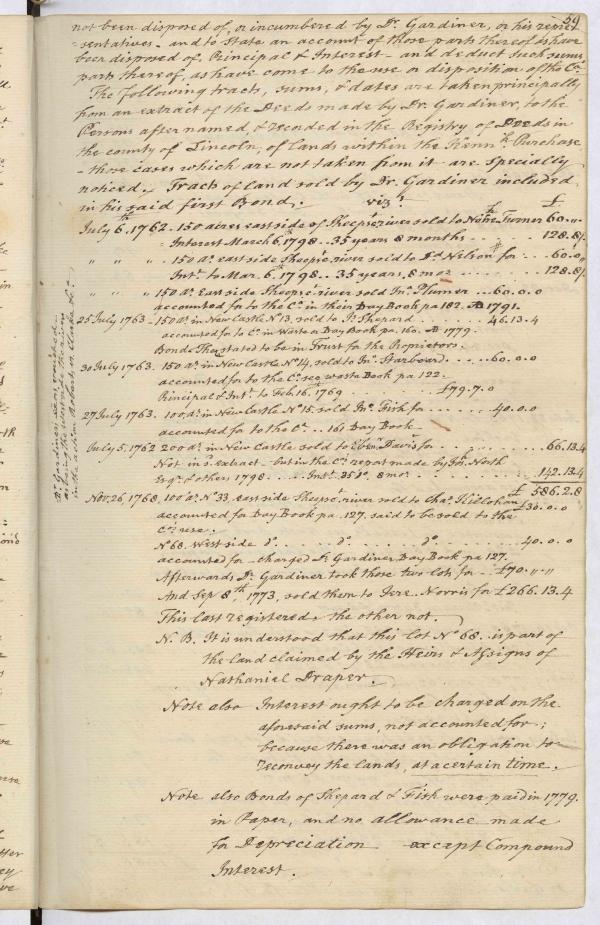 59
not been disposed of, or incumbered by Dr. Gardiner, or his repre-
-sentatives - and to State an account of those parts thereof as have
been disposed of, Principal & Interest - and deduct such sums,
parts thereof, as have come to the use or disposition of the Co.
The following tracts, sums, & dates are taken principally
from an extract of the Deeds made by Dr. Gardiner, to the
Persons after named, & recorded in the Registry of Deeds in
the county of Lincoln, of lands within the Kennk. Purchase
- those cases which are not taken from it are specially
noticed. Tracts of land sold by Dr. Gardiner included
in his said first Bond, vizt. £
July 6th. 1762. 150 acres east side of Sheepst river sold to Turner 60. " "
Interest March 6th, 1798 .. 35 years 8 months .. 128.8/.
" " " 150 as. east side Sheepst. river sold to Dd. Nelson for .. 60. 0 "
Intt. to Mar. 6th 1798 .. 35 years, 8 mos .. 128.8/.
" " " 150 as. East side Sheepst. river sold Jno. Plumer ... 60. 0. 0
accounted for to the Co. in their Day Book pa. 182. AD 1791.
25 July 1763 - 150 as. in New Castle No 13, sold to Shepard .... 46.13.4
accounted for to Co. in Waste or Day Book pa. 160. AD 1779.
Bond stated to be in Trust for the Proprietors.
30 July 1763. 150 as. in New Castle No 14, sold to Jno. Starboard .... 60. 0. 0
accounted for to the Co. see waste Book pa. 122.
Principal & Intt. to Feb. 16th, 1769 ... £79.7.0
27 July 1763. 100 as. in New Castle No. 15, sold Jno. Fish for ..... 40. 0. 0
accounted for to the Co. .. 161 Day Book -
July 5, 1762 200 as. in New Castle sold to Eben. Davis for ........ 66.13.4
Not in sd. extract - but in the Co. report made by Jos. North
Esqr. & others 1798 .... Intt. 35 ys. 8 mos. ........ 142.13.4
£586.2.8
Nov. 26, 1768, 100 as. No 33, east side Sheepst. river sold to Chas. £30. 0. 0
accounted for Day Book pa. 127. said to be sold to the
Co. use.
No 68. West side do. ..... do. ........ do. ..... 40. 0. 0
accounted for - charged Dr. Gardiner Day Book pa 127.
Afterwards Dr. Gardiner took those two lots for - £70. " "
And Sep 8th, 1773, sold them to Jere. Norris for £266.13.4
This last registered & the other not.
N. B. It is understood that this lot No 68. is part of
the land claimed by the Heirs & Assigns of
Nathaniel Draper.
Note also Interest ought to be charged on the
aforesaid sums, not accounted for;
because there was an obligation to
reconvey the lands, at a certain time.
Note also Bonds of Shepard & Fish were paid in 1779.
in Paper, and no allowance made
for Depreciation except Compound
Interest.
Dr. Gardiner
as being the west side the river
in the action Roberts v. Clarke &c.